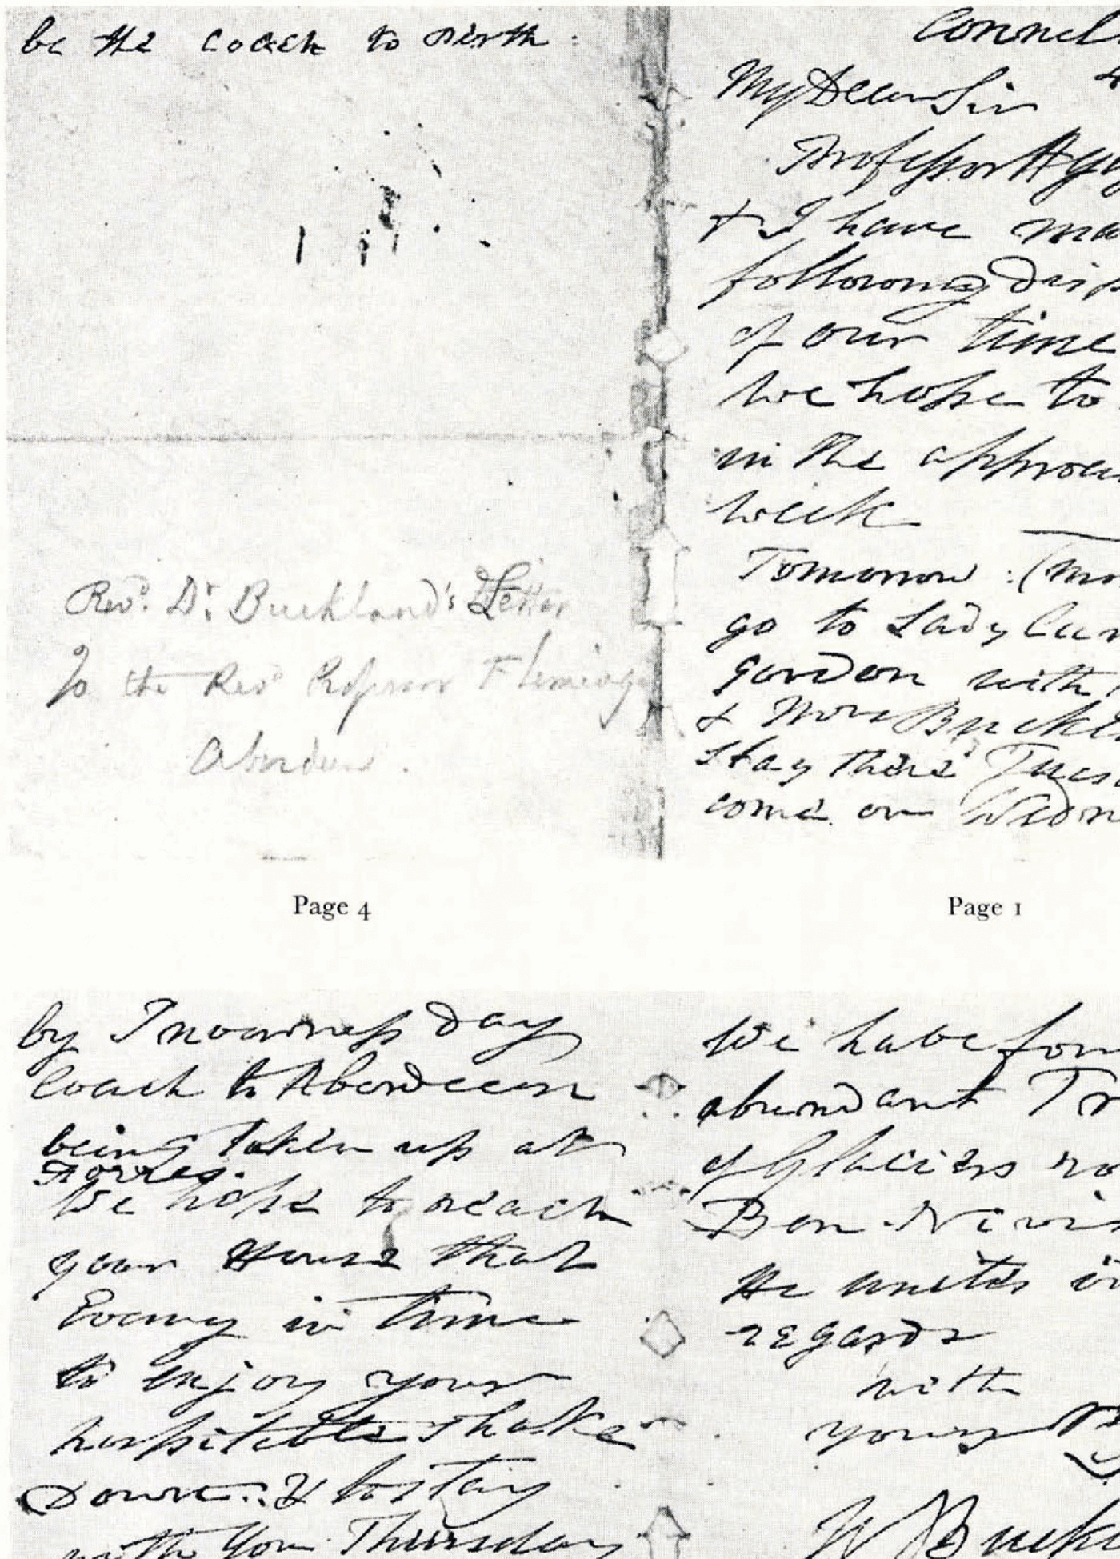 be the coach to Perth
Revd. Dr. Buckland's Letter
To the Revd Professor Fleming
Aberdeen.
Page 4
Connel
My Dear Sir
Professor Agas
& I have ma
following Disp
of our time
We hope to
in the approa
Week
Tomorrow (mo
go to Lady Cum
gordon with
& Mrs Buckl
stay there Tues
come on Wedn
Page 1
by Inverness day
Coach to Aberdeen
being taken up at
Forres.
We hope to reach
your House that
Evening in time
to enjoy your
hospitable shake
Down & to stay
with you Thursday
We have foun
abundant Tr
of Glaciers ro
Ben Nevis
He unites in
regards
with
yours
W Buck